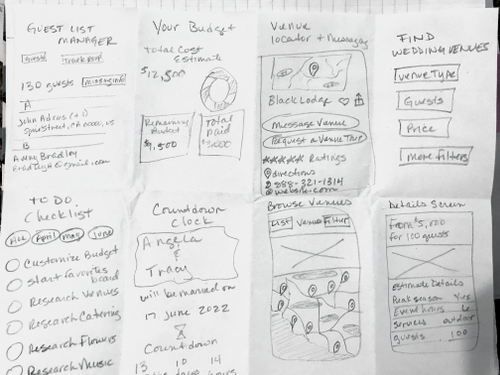 GUEST LIST
MANAGER
Guest
Track RSVP
130 guests
missing info
A
John Adams (+1)
B
Your Budget
Total Cost
Estimate
$12,500
Remaining
Budget
$9,500
Total
paid
Venue
locator + messaging
Black Lodge
Message Venue
Request a Venue Tour
Ratings
directions
888-321-1314
FIND
WEDDING VENUES
Venue Type
Guests
Price
More Filters
TO DO
Checklist
ALL
April
May
June
Customize Budget
Start favorites
board
Research Venues
Research Catering
Research Flowers
Research Music
Countdown
Clock
Angela
&
Tracy
will be married on
17 June 2022
Countdown
13 10 14
days hours
Browse Venues
List
Venue Filter
Details Screen
for 100 guests
Estimate Details
Peak season Yes
Event hours 6
services outdoor
guests 100